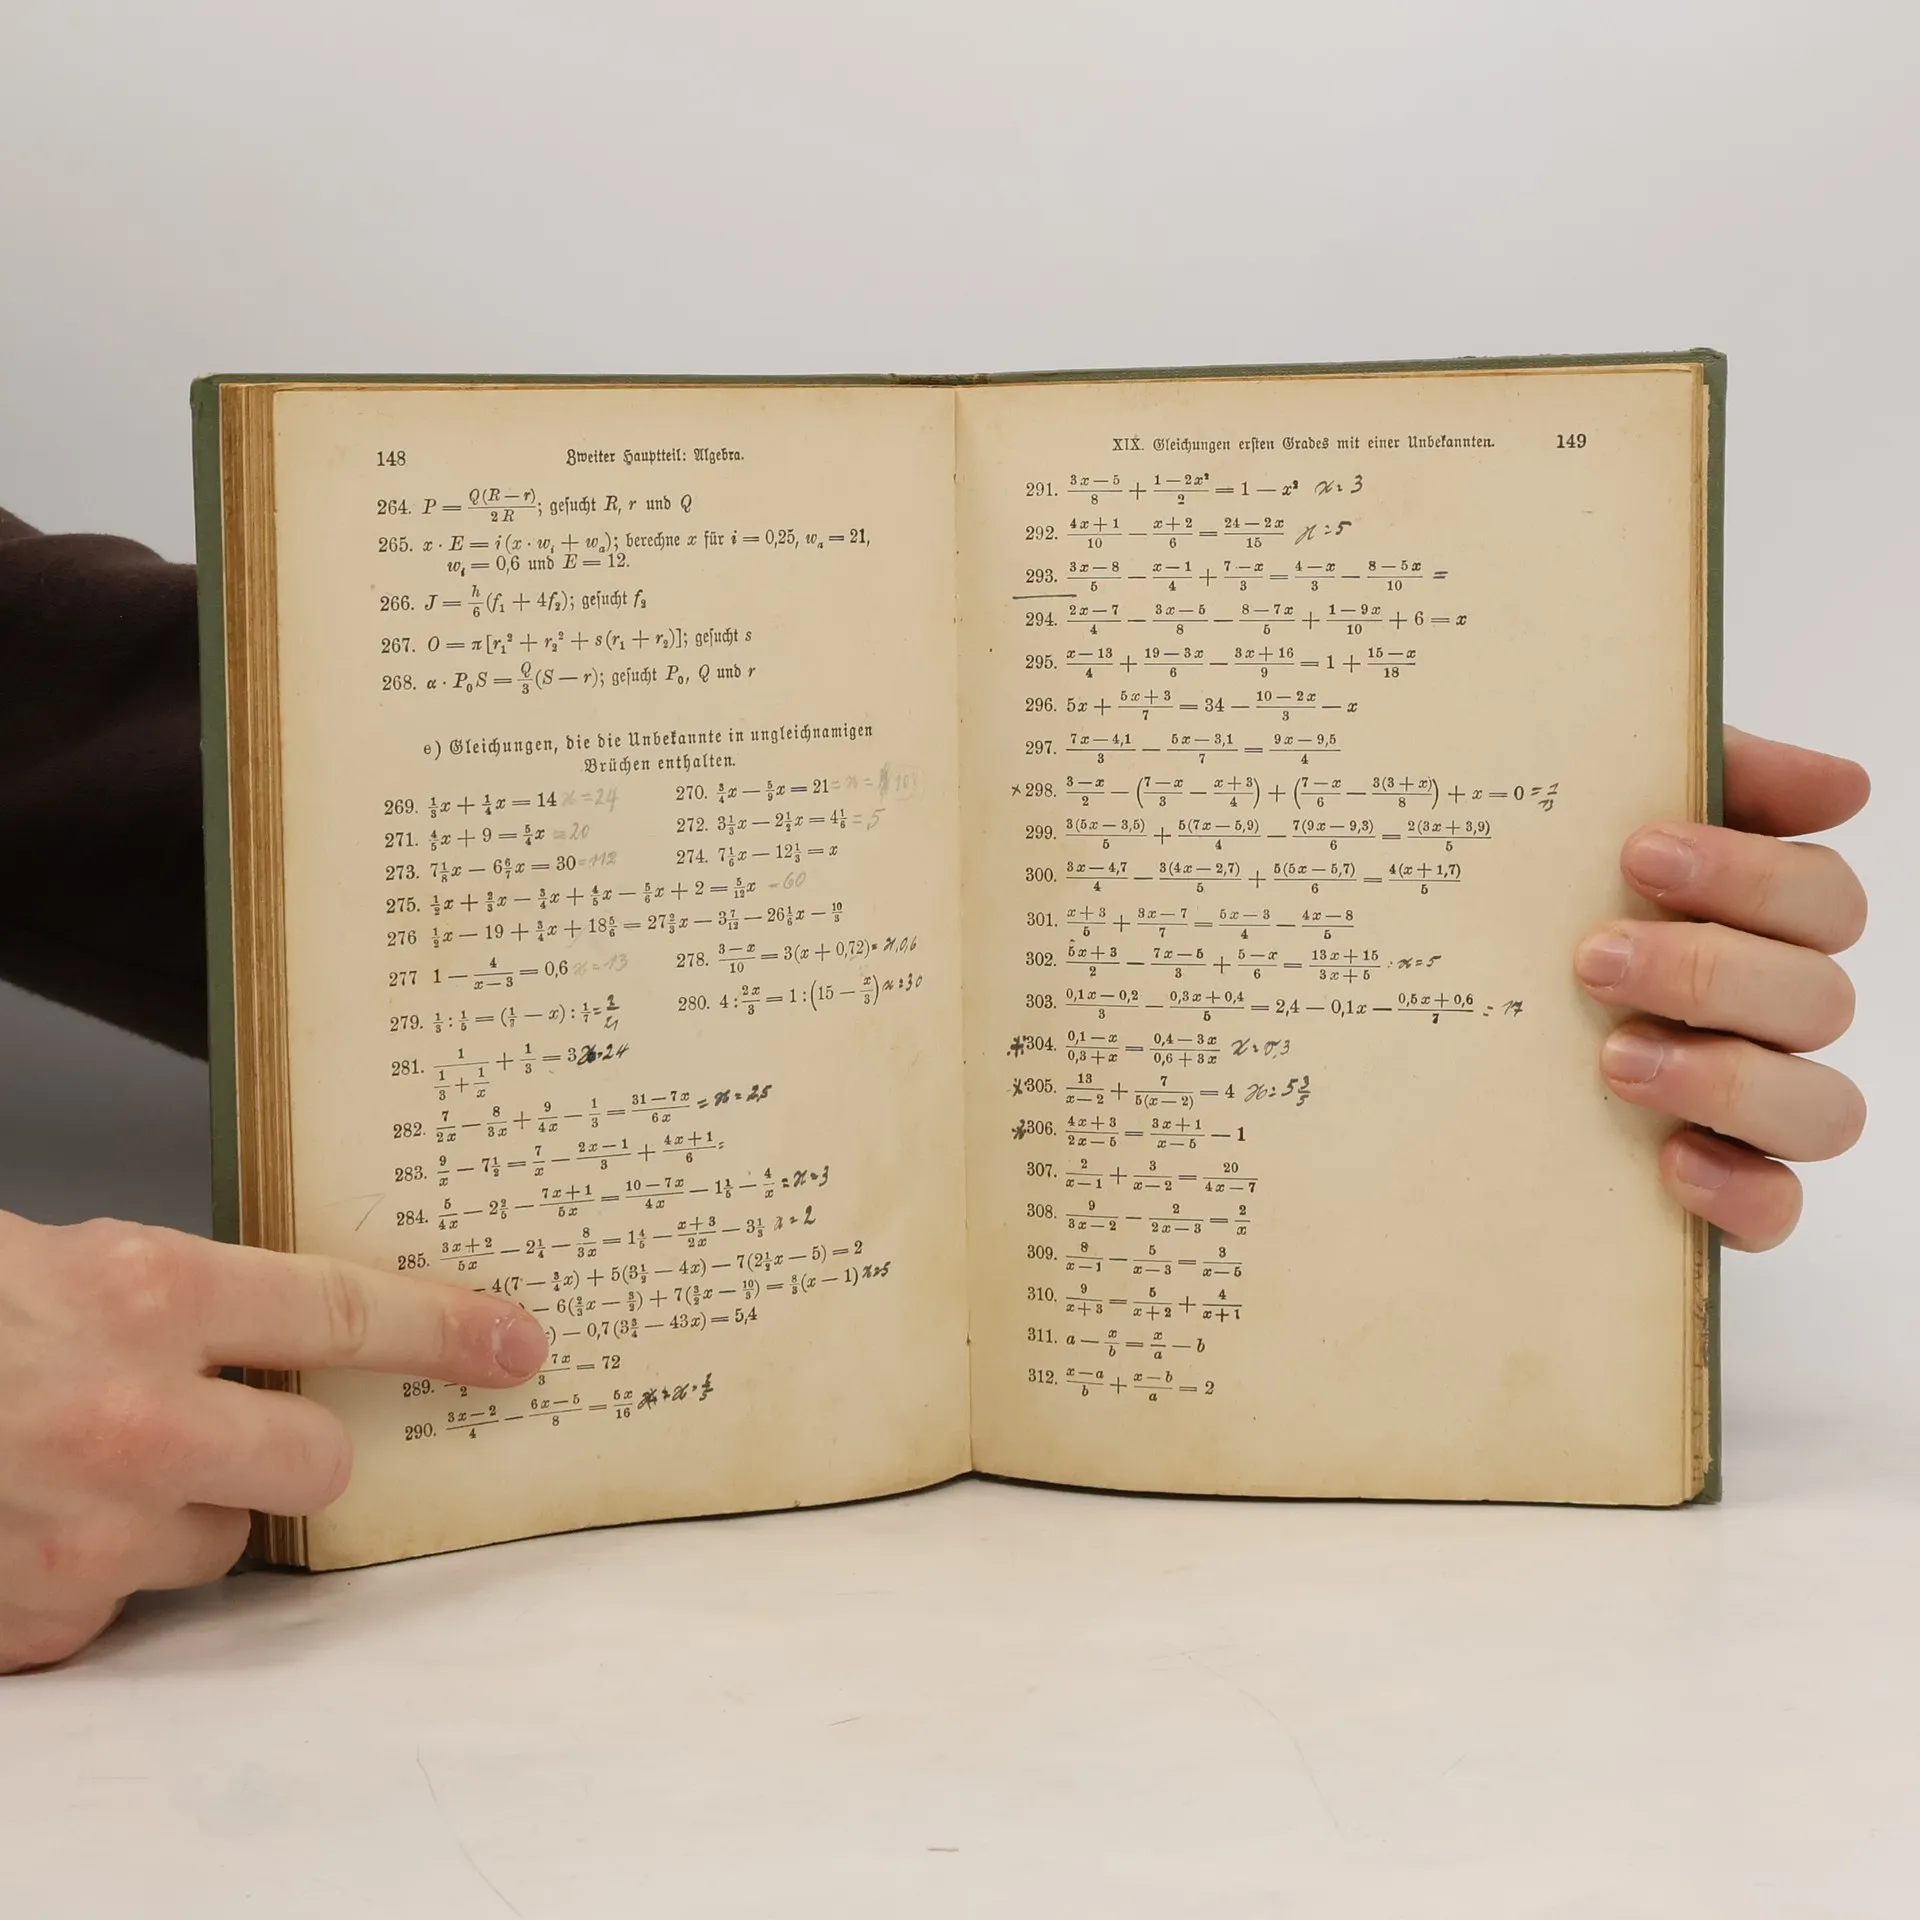 148 Zweiter Hauptteil: Algebra.
264. P = Q(R − r)/2R; gesucht R, r und Q
265. x · E = i(x · wᵢ + wₐ); berechne x für i = 0,25, wₐ = 21,
wᵢ = 0,6 und E = 12.
266. J = h/6 (f₁ + 4f₂); gesucht f₂
267. O = π[r₁² + r₂² + s(r₁ + r₂)]; gesucht s
268. α · P₀S = Q/3 (S − r); gesucht P₀, Q und r
e) Gleichungen, die die Unbekannte in ungleichnamigen
Brüchen enthalten.
269. 1/3 x + 1/4 x = 14 x = 24 270. 3/4 x − 5/9 x = 21 = x =
271. 4/5 x + 9 = 5/4 x = 20 272. 3 1/3 x − 2 1/2 x = 4 1/6 = 5
273. 7 1/8 x − 6 6/7 x = 30 = 112 274. 7 1/6 x − 12 1/3 = x
275. 1/2 x + 2/3 x − 3/4 x + 4/5 x − 5/6 x + 2 = 5/12 x − 60
276 1/2 x − 19 + 3/4 x + 18 5/6 = 27 2/3 x − 3 7/12 − 26 1/6 x − 10/3
277 1 − 4/(x − 3) = 0,6 x = 13 278. (3 − x)/10 = 3(x + 0,72) = x,0,6
279. 1/3 : 1/5 = (1/7 − x) : 1/7 = 2/21 280. 4 : 2x/3 = 1 : (15 − x/3) x = 30
281. 1/(1/3 + 1/x) + 1/3 = 3 x = 24
282. 7/2x − 8/3x + 9/4x − 1/3 = (31 − 7x)/6x = x = 2,5
283. 9/x − 7 1/2 = 7/x − (2x − 1)/3 + (4x + 1)/6 =
284. 5/4x − 2 2/5 − (7x + 1)/5x = (10 − 7x)/4x − 1 1/5 − 4/x = x = 3
285. (3x + 2)/5x − 2 1/4 − 8/3x = 1 4/5 − (x + 3)/2x − 3 1/3 x = 2
− 4(7 − 3/4 x) + 5(3 1/2 − 4x) − 7(2 1/2 x − 5) = 2
) − 6(2/3 x − 3/2) + 7(3/2 x − 10/3) = 8/3 (x − 1) x = 5
) − 0,7(3 3/4 − 43x) = 5,4
289. 2 7x/3 = 72
290. (3x − 2)/4 − (6x − 5)/8 = 5x/16 x =
XIX. Gleichungen ersten Grades mit einer Unbekannten. 149
291. (3x − 5)/8 + (1 − 2x²)/2 = 1 − x² x = 3
292. (4x + 1)/10 − (x + 2)/6 = (24 − 2x)/15 x = 5
293. (3x − 8)/5 − (x − 1)/4 + (7 − x)/3 = (4 − x)/3 − (8 − 5x)/10 =
294. (2x − 7)/4 − (3x − 5)/8 − (8 − 7x)/5 + (1 − 9x)/10 + 6 = x
295. (x − 13)/4 + (19 − 3x)/6 − (3x + 16)/9 = 1 + (15 − x)/18
296. 5x + (5x + 3)/7 = 34 − (10 − 2x)/3 − x
297. (7x − 4,1)/3 − (5x − 3,1)/7 = (9x − 9,5)/4
×298. (3 − x)/2 − ((7 − x)/3 − (x + 3)/4) + ((7 − x)/6 − 3(3 + x)/8) + x = 0 =
299. 3(5x − 3,5)/5 + 5(7x − 5,9)/4 − 7(9x − 9,3)/6 = 2(3x + 3,9)/5
300. (3x − 4,7)/4 − 3(4x − 2,7)/5 + 5(5x − 5,7)/6 = 4(x + 1,7)/5
301. (x + 3)/5 + (3x − 7)/7 = (5x − 3)/4 − (4x − 8)/5
302. (5x + 3)/2 − (7x − 5)/3 + (5 − x)/6 = (13x + 15)/(3x + 5) : x = 5
303. (0,1x − 0,2)/3 − (0,3x + 0,4)/5 = 2,4 − 0,1x − (0,5x + 0,6)/7 = 17
304. (0,1 − x)/(0,3 + x) = (0,4 − 3x)/(0,6 + 3x) x = 0,3
×305. 13/(x − 2) + 7/5(x − 2) = 4 x = 5 3/5
×306. (4x + 3)/(2x − 5) = (3x + 1)/(x − 5) − 1
307. 2/(x − 1) + 3/(x − 2) = 20/(4x − 7)
308. 9/(3x − 2) − 2/(2x − 3) = 2/x
309. 8/(x − 1) − 5/(x − 3) = 3/(x − 5)
310. 9/(x + 3) = 5/(x + 2) + 4/(x + 1)
311. a − x/b = x/a − b
312. (x − a)/b + (x − b)/a = 2